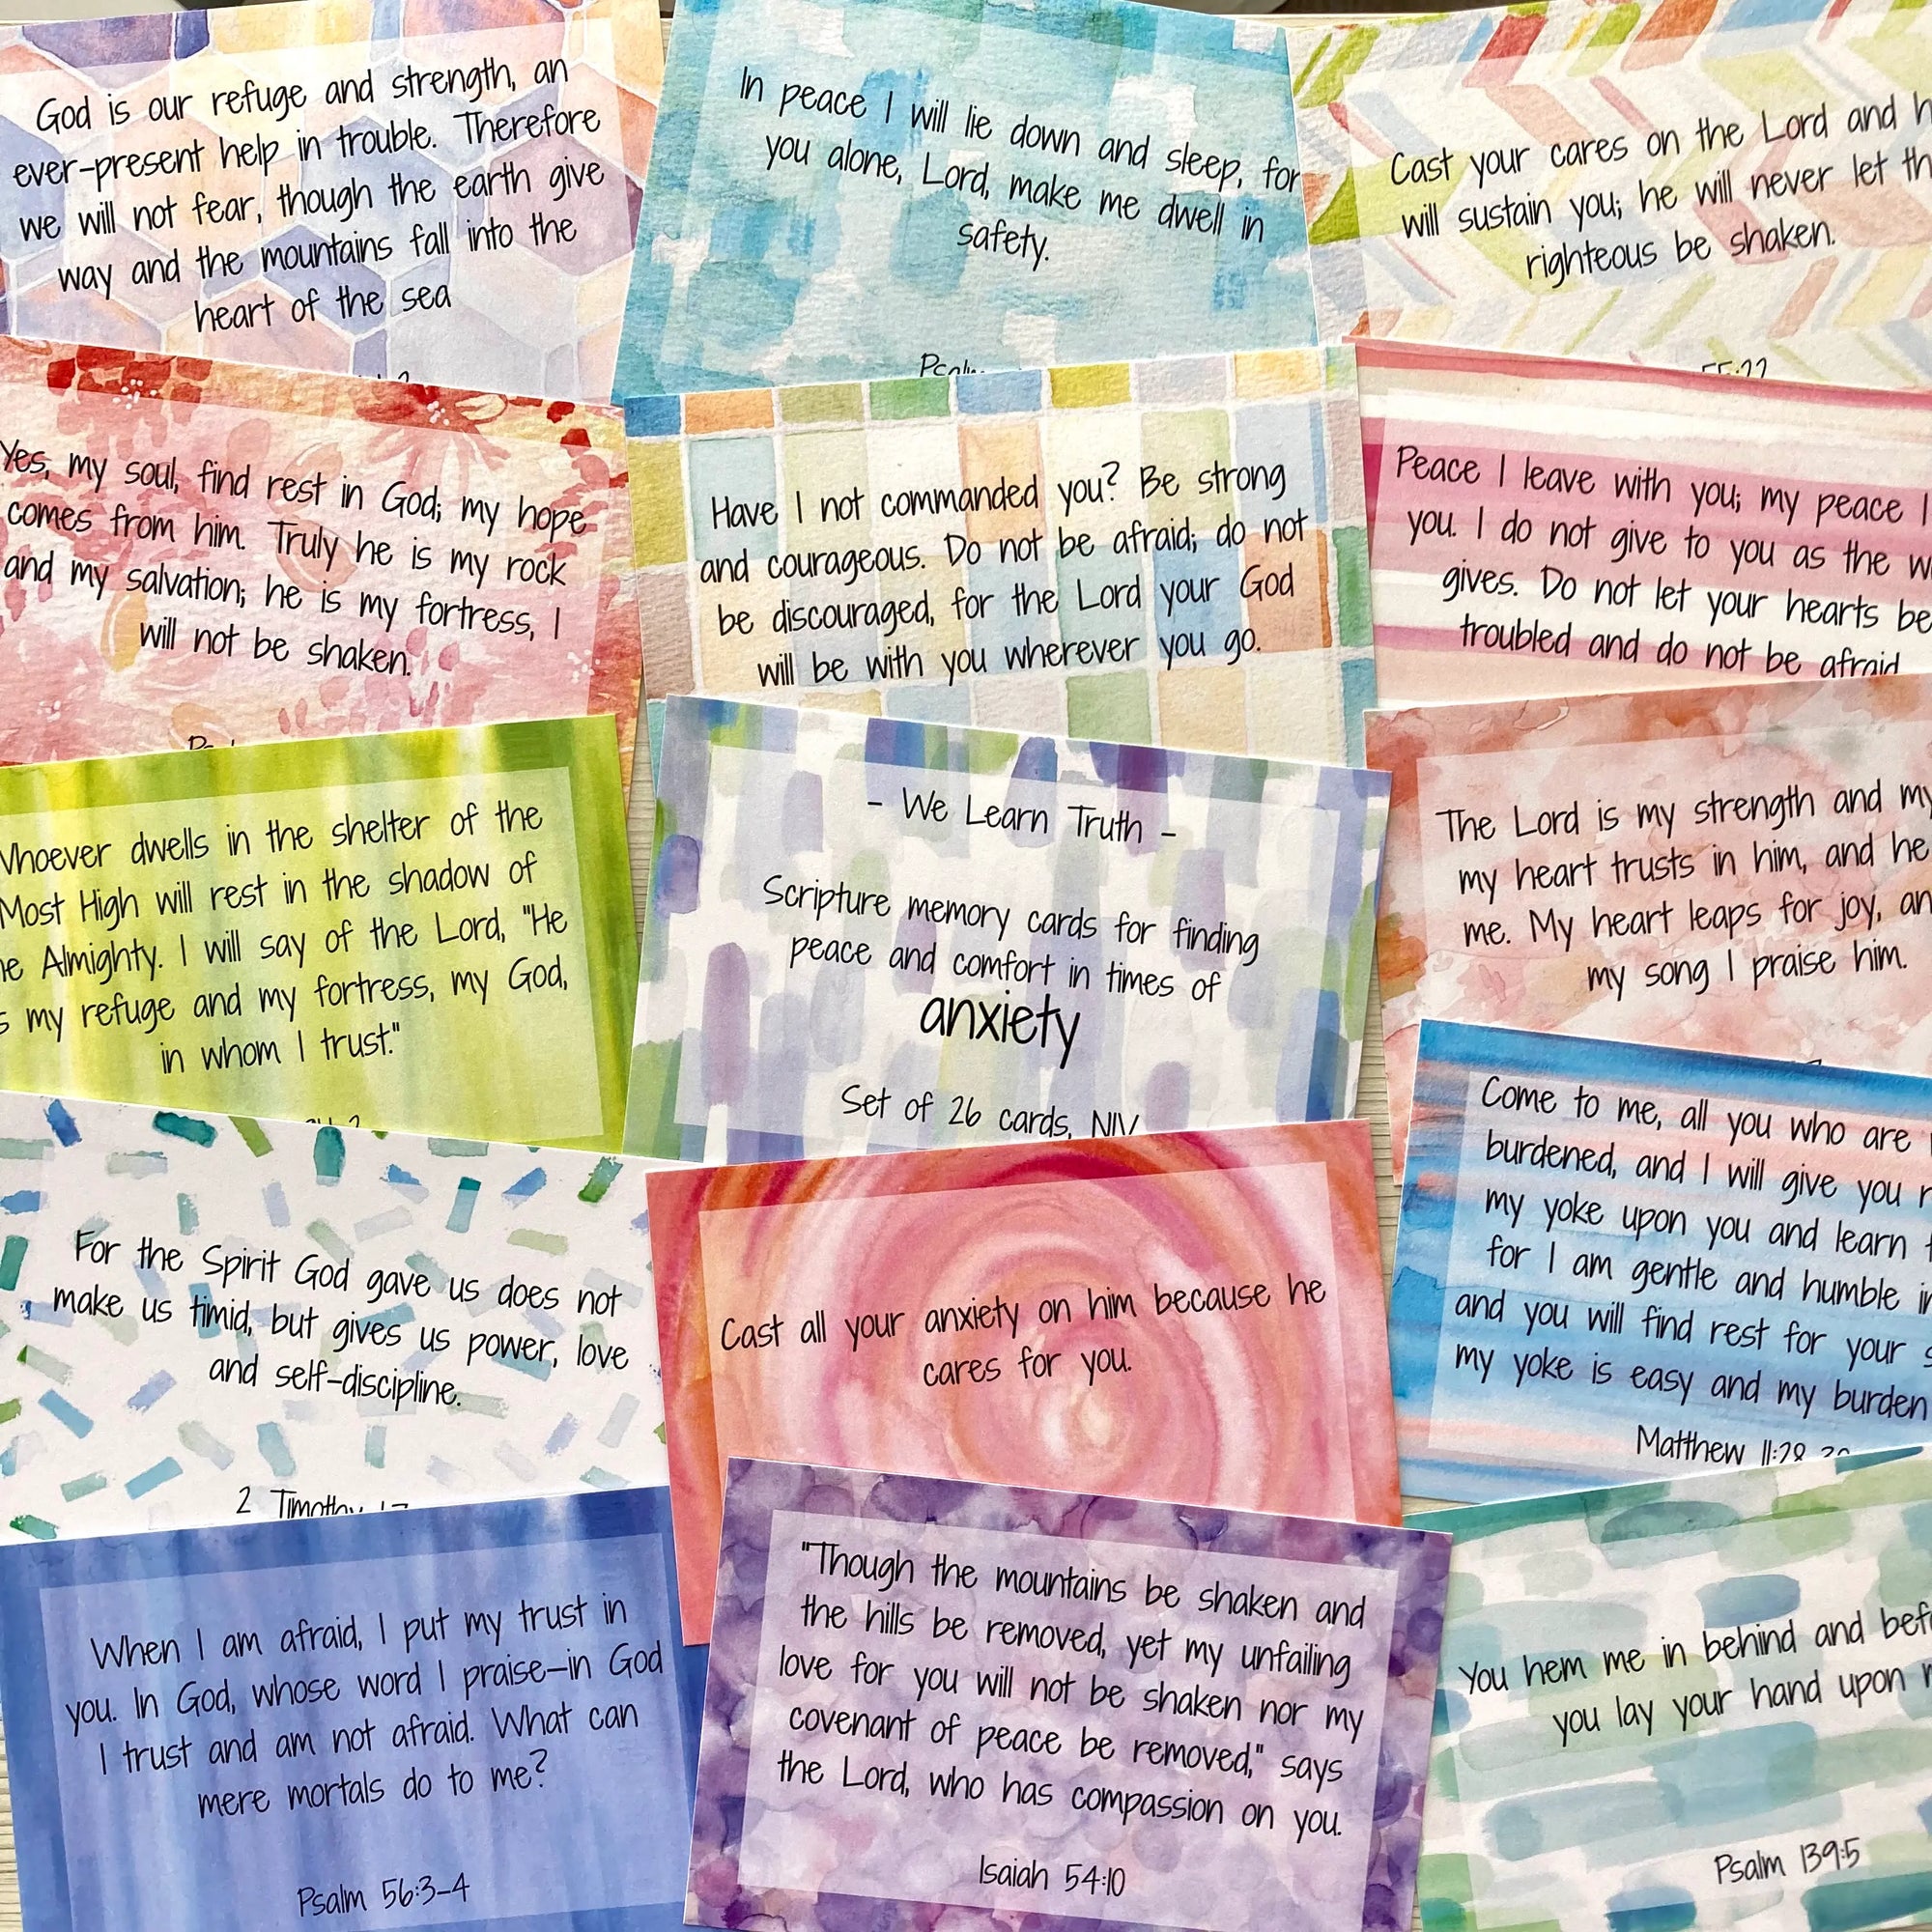 God is our refuge and strength, an
ever-present help in trouble. Therefore
we will not fear, though the earth give
way and the mountains fall into the
heart of the sea
In peace I will lie down and sleep, for
you alone, Lord, make me dwell in
safety.
Cast your cares on the Lord and
will sustain you; he will never let
righteous be shaken.
55:22
Yes, my soul, find rest in God; my hope
comes from him. Truly he is my rock
and my salvation; he is my fortress, I
will not be shaken.
Have I not commanded you? Be strong
and courageous. Do not be afraid; do not
be discouraged, for the Lord your God
will be with you wherever you go.
Peace I leave with you; my peace I
you. I do not give to you as the
gives. Do not let your hearts be
troubled and do not be afraid
Whoever dwells in the shelter of the
Most High will rest in the shadow of
Almighty. I will say of the Lord, "He
my refuge and my fortress, my God,
in whom I trust."
- We Learn Truth -
Scripture memory cards for finding
peace and comfort in times of
anxiety
Set of 26 cards, NIV
The Lord is my strength and my
my heart trusts in him, and he
me. My heart leaps for joy,
my song I praise him.
For the Spirit God gave us does not
make us timid, but gives us power, love
and self-discipline.
2 Timothy 1:7
Cast all your anxiety on him because he
cares for you.
Come to me, all you who are
burdened, and I will give you
my yoke upon you and learn
for I am gentle and humble
and you will find rest for your
my yoke is easy and my burden
Matthew 11:28
When I am afraid, I put my trust in
you. In God, whose word I praise—in God
I trust and am not afraid. What can
mere mortals do to me?
Psalm 56:3-4
"Though the mountains be shaken and
the hills be removed, yet my unfailing
love for you will not be shaken nor my
covenant of peace be removed," says
the Lord, who has compassion on you.
Isaiah 54:10
You hem me in behind and
you lay your hand upon
Psalm 139:5